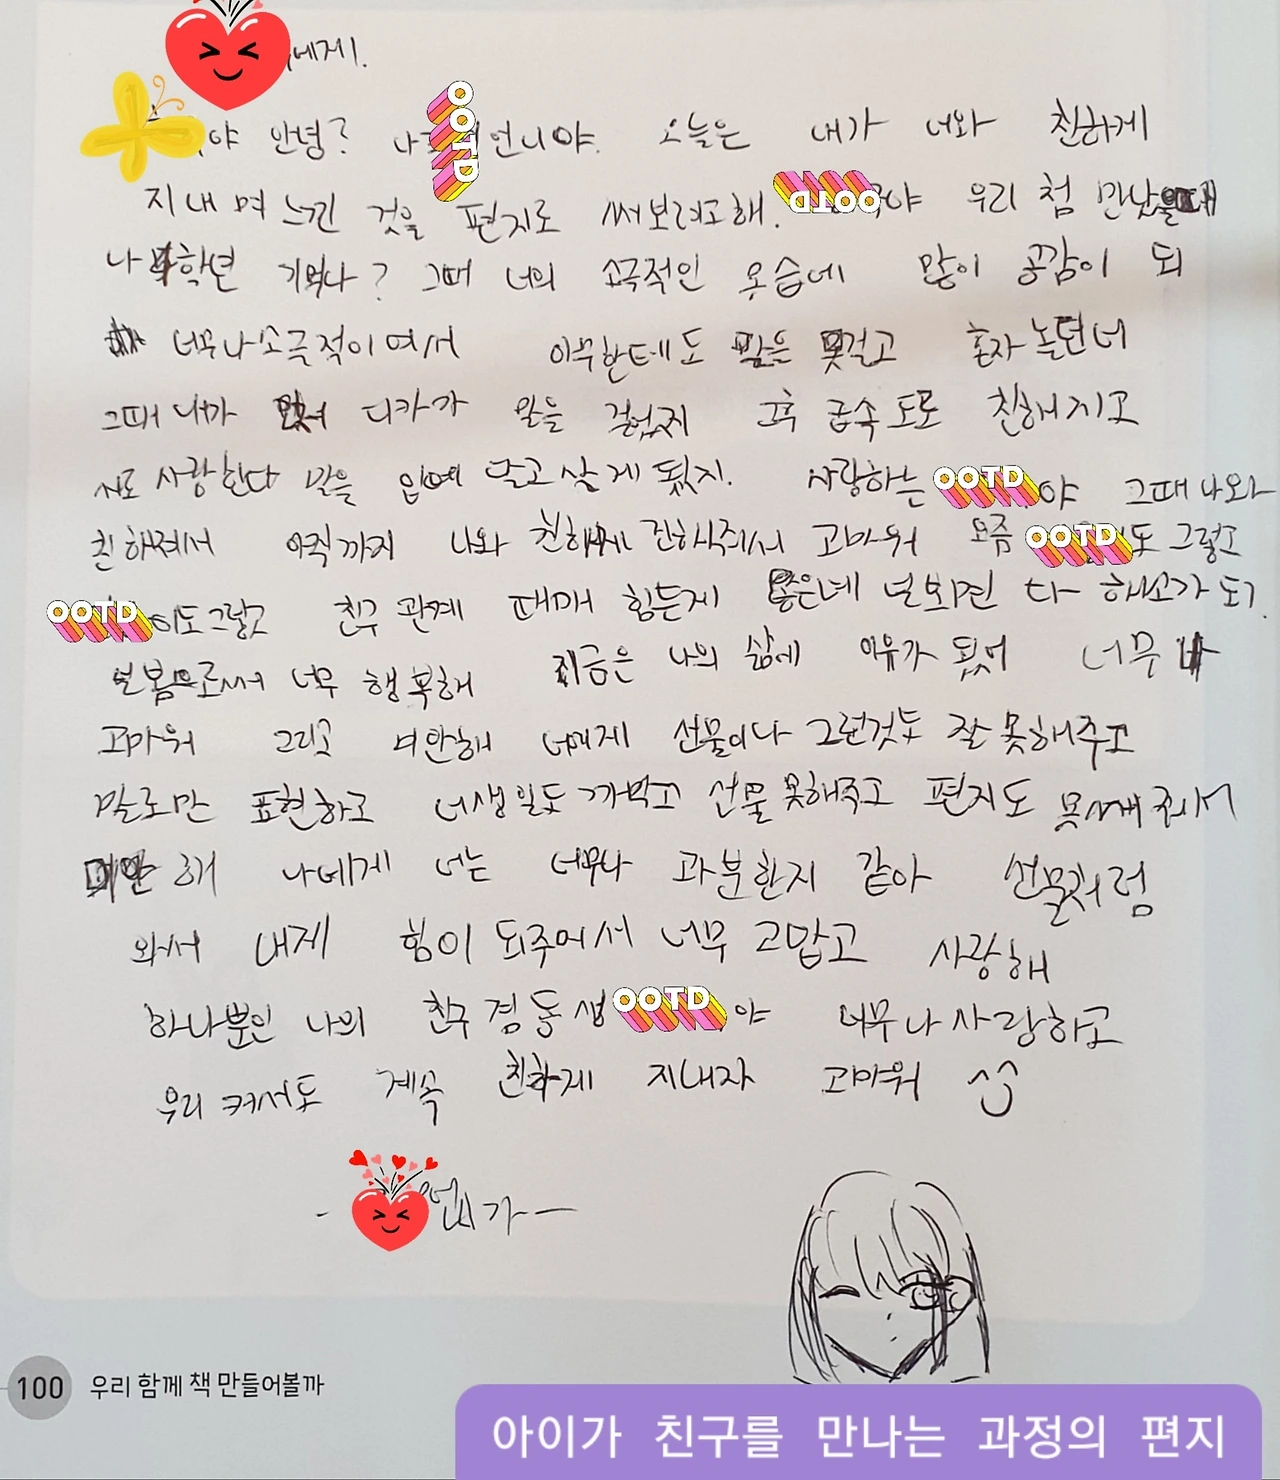 에게.
야 안녕? 나 언니야. 오늘은 내가 너와 친하게
OOTD
지내며 느낀 것을 편지로 써보려고해. OOTD야 우리 첨 만났을때
나 학년 기억나? 그때 너의 소극적인 모습에 많이 공감이 되
너무나소극적이여서 아무한테도 말을 못걸고 혼자 놀던너
그때 니가 먼저 다가가 말을 걸었지 그후 급속도로 친해지고
서로 사랑한다 말을 입에 달고 살게 됬지. 사랑하는 OOTD야 그때 나와
친해져서 아직까지 나와 친하게 지내줘서 고마워 요즘 OOTD도 그렇고
OOTD이도 그렇고 친구 관계 때매 힘든게 많은데 널보면 다 해소가 되.
널봄으로써 너무 행복해 지금은 나의 삶에 이유가 됬어 너무
고마워 그리고 미안해 너에게 선물이나 그런것도 잘 못해주고
말로만 표현하고 너생일도 까먹고 선물 못해주고 편지도 못써줘서
미안해 나에게 너는 너무나 과분한지 같아 선물처럼
와서 내게 힘이 되주어서 너무 고맙고 사랑해
하나뿐인 나의 친구 겸 동생 OOTD야 너무나 사랑하고
우리 커서도 계속 친하게 지내자 고마워
- 언니가 -
100 우리 함께 책 만들어볼까
아이가 친구를 만나는 과정의 편지